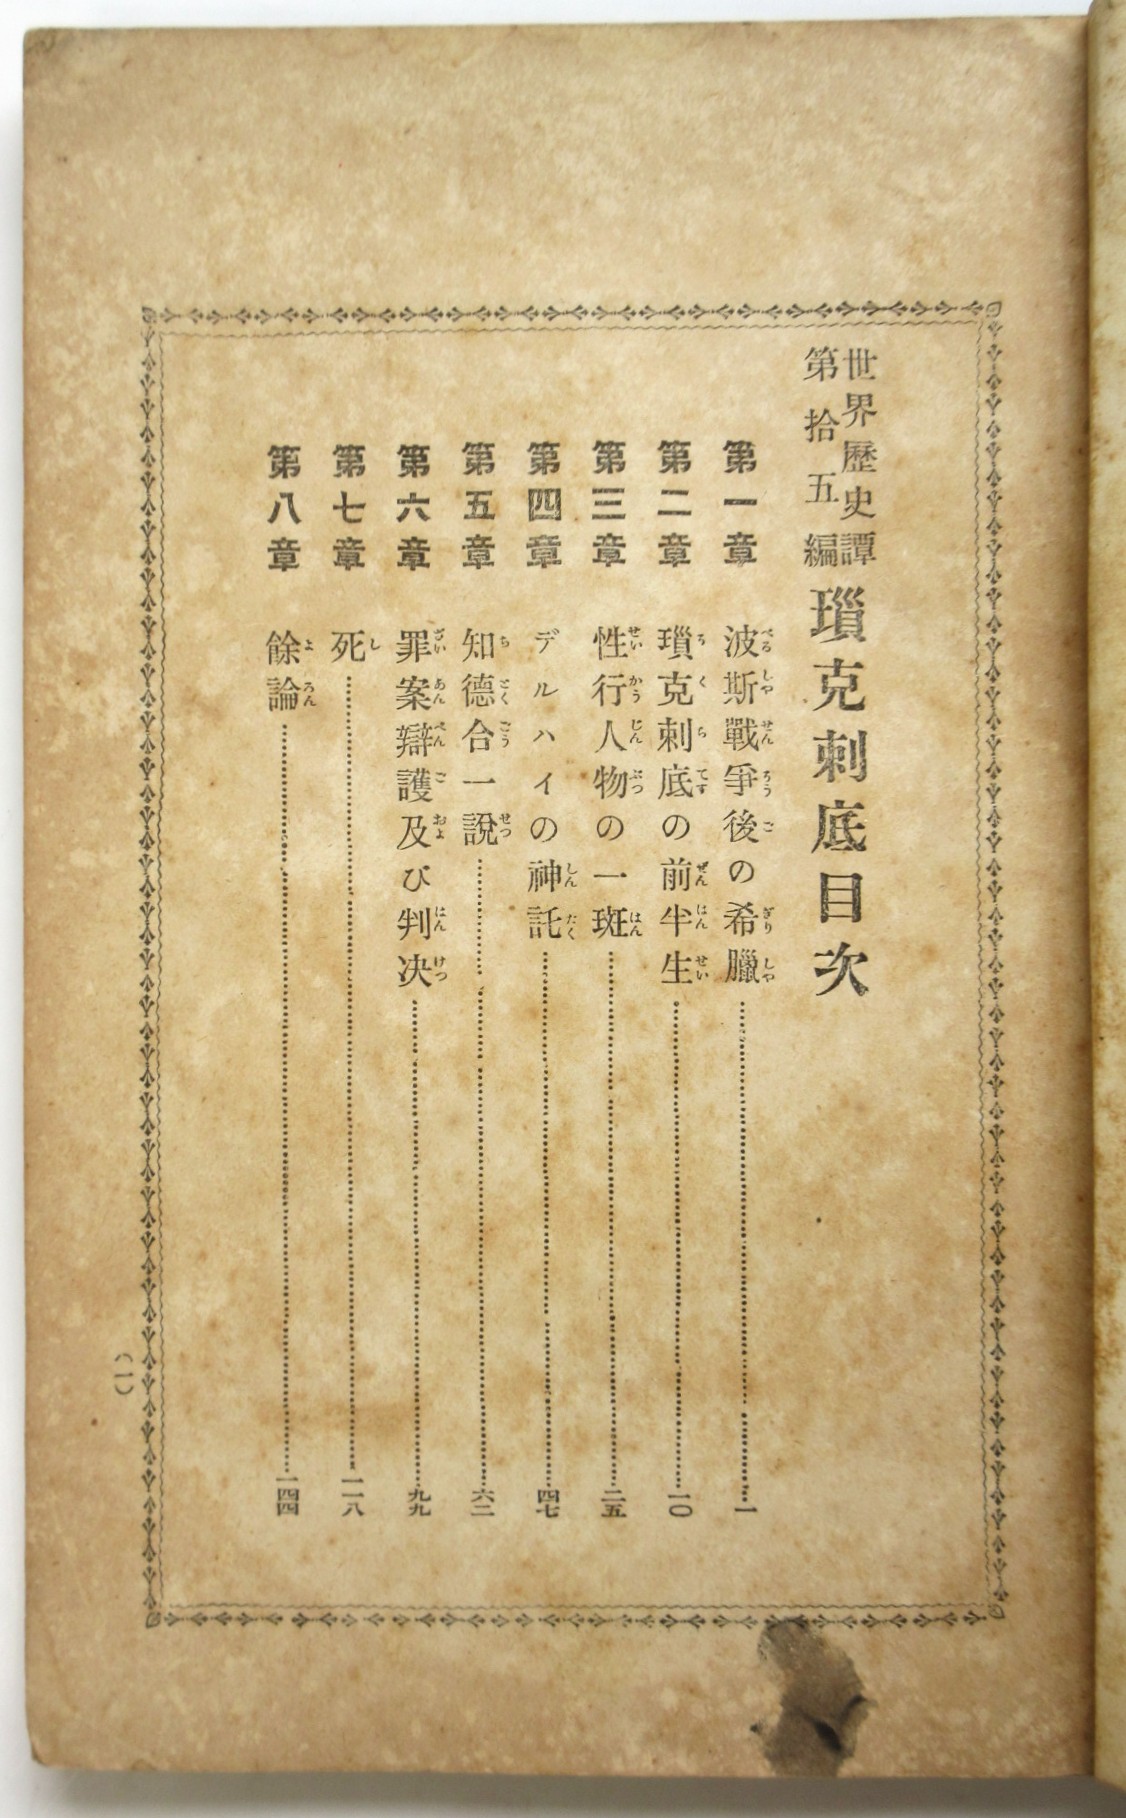 世界歷史譚
第拾五編
瑣克刺底目次
第一章 波斯戰爭後の希臘 一
第二章 瑣克刺底の前半生 一〇
第三章 性行人物の一斑 二五
第四章 デルハイの神託 四七
第五章 知德合一說 六二
第六章 罪案辯護及び判決 九九
第七章 死 一一八
第八章 餘論 一四四
(一)